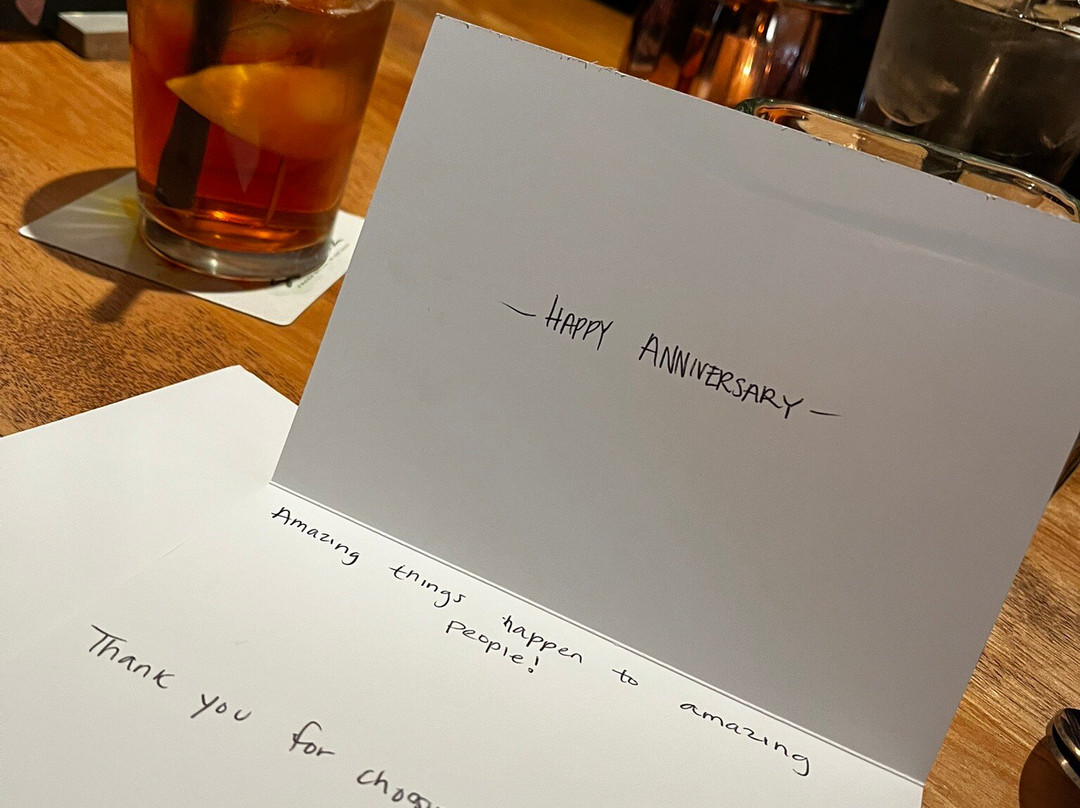 - HAPPY ANNIVERSARY -
Amazing things happen to amazing
people!
Thank you for